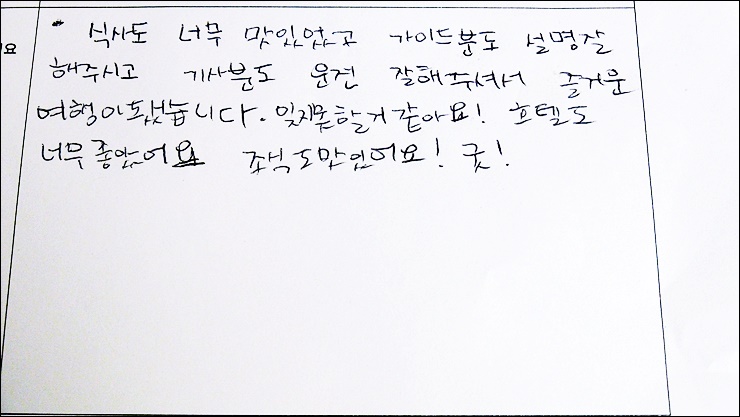 * 식사도 너무 맛있었고 가이드분도 설명잘
요
해주시고 기사분도 운전 잘해주셔서 즐거운
여행이됐습니다. 잊지못할거같아요! 호텔도
너무좋았어요 조식도맛있어요! 굿!